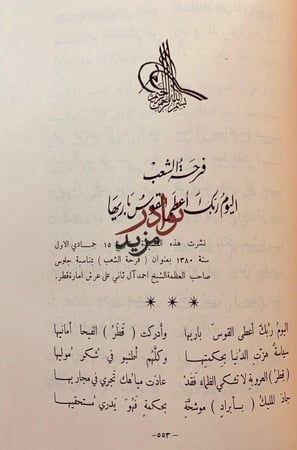 بسم الله الرحمن الرحيم
فرحة الشعب
اليوم ربك أعطى القوس باريها
نوادر
مزيد
نشرت هذه ١٥ جمادي الاول
سنة ١٣٨٠ بعنوان ( فرحة الشعب ) بمناسبة جلوس
صاحب العظمة الشيخ احمد آل ثاني على عرش امارة قطر .
اليوم ربك أعطى القوس باريها وأدركت ( قطر ) الفيحا أمانيها
سياسة هزت الدنيا بحكمتها وكلهم أطنبو في شكر موليها
( قطر ) العروبة لا تشكي الظماء فقد عادت مياهك تجري في مجاريها
جاد المليك ( بأبراد ) موشحة بحكمة فهو يدري مستحقيها
-٥٥٣-